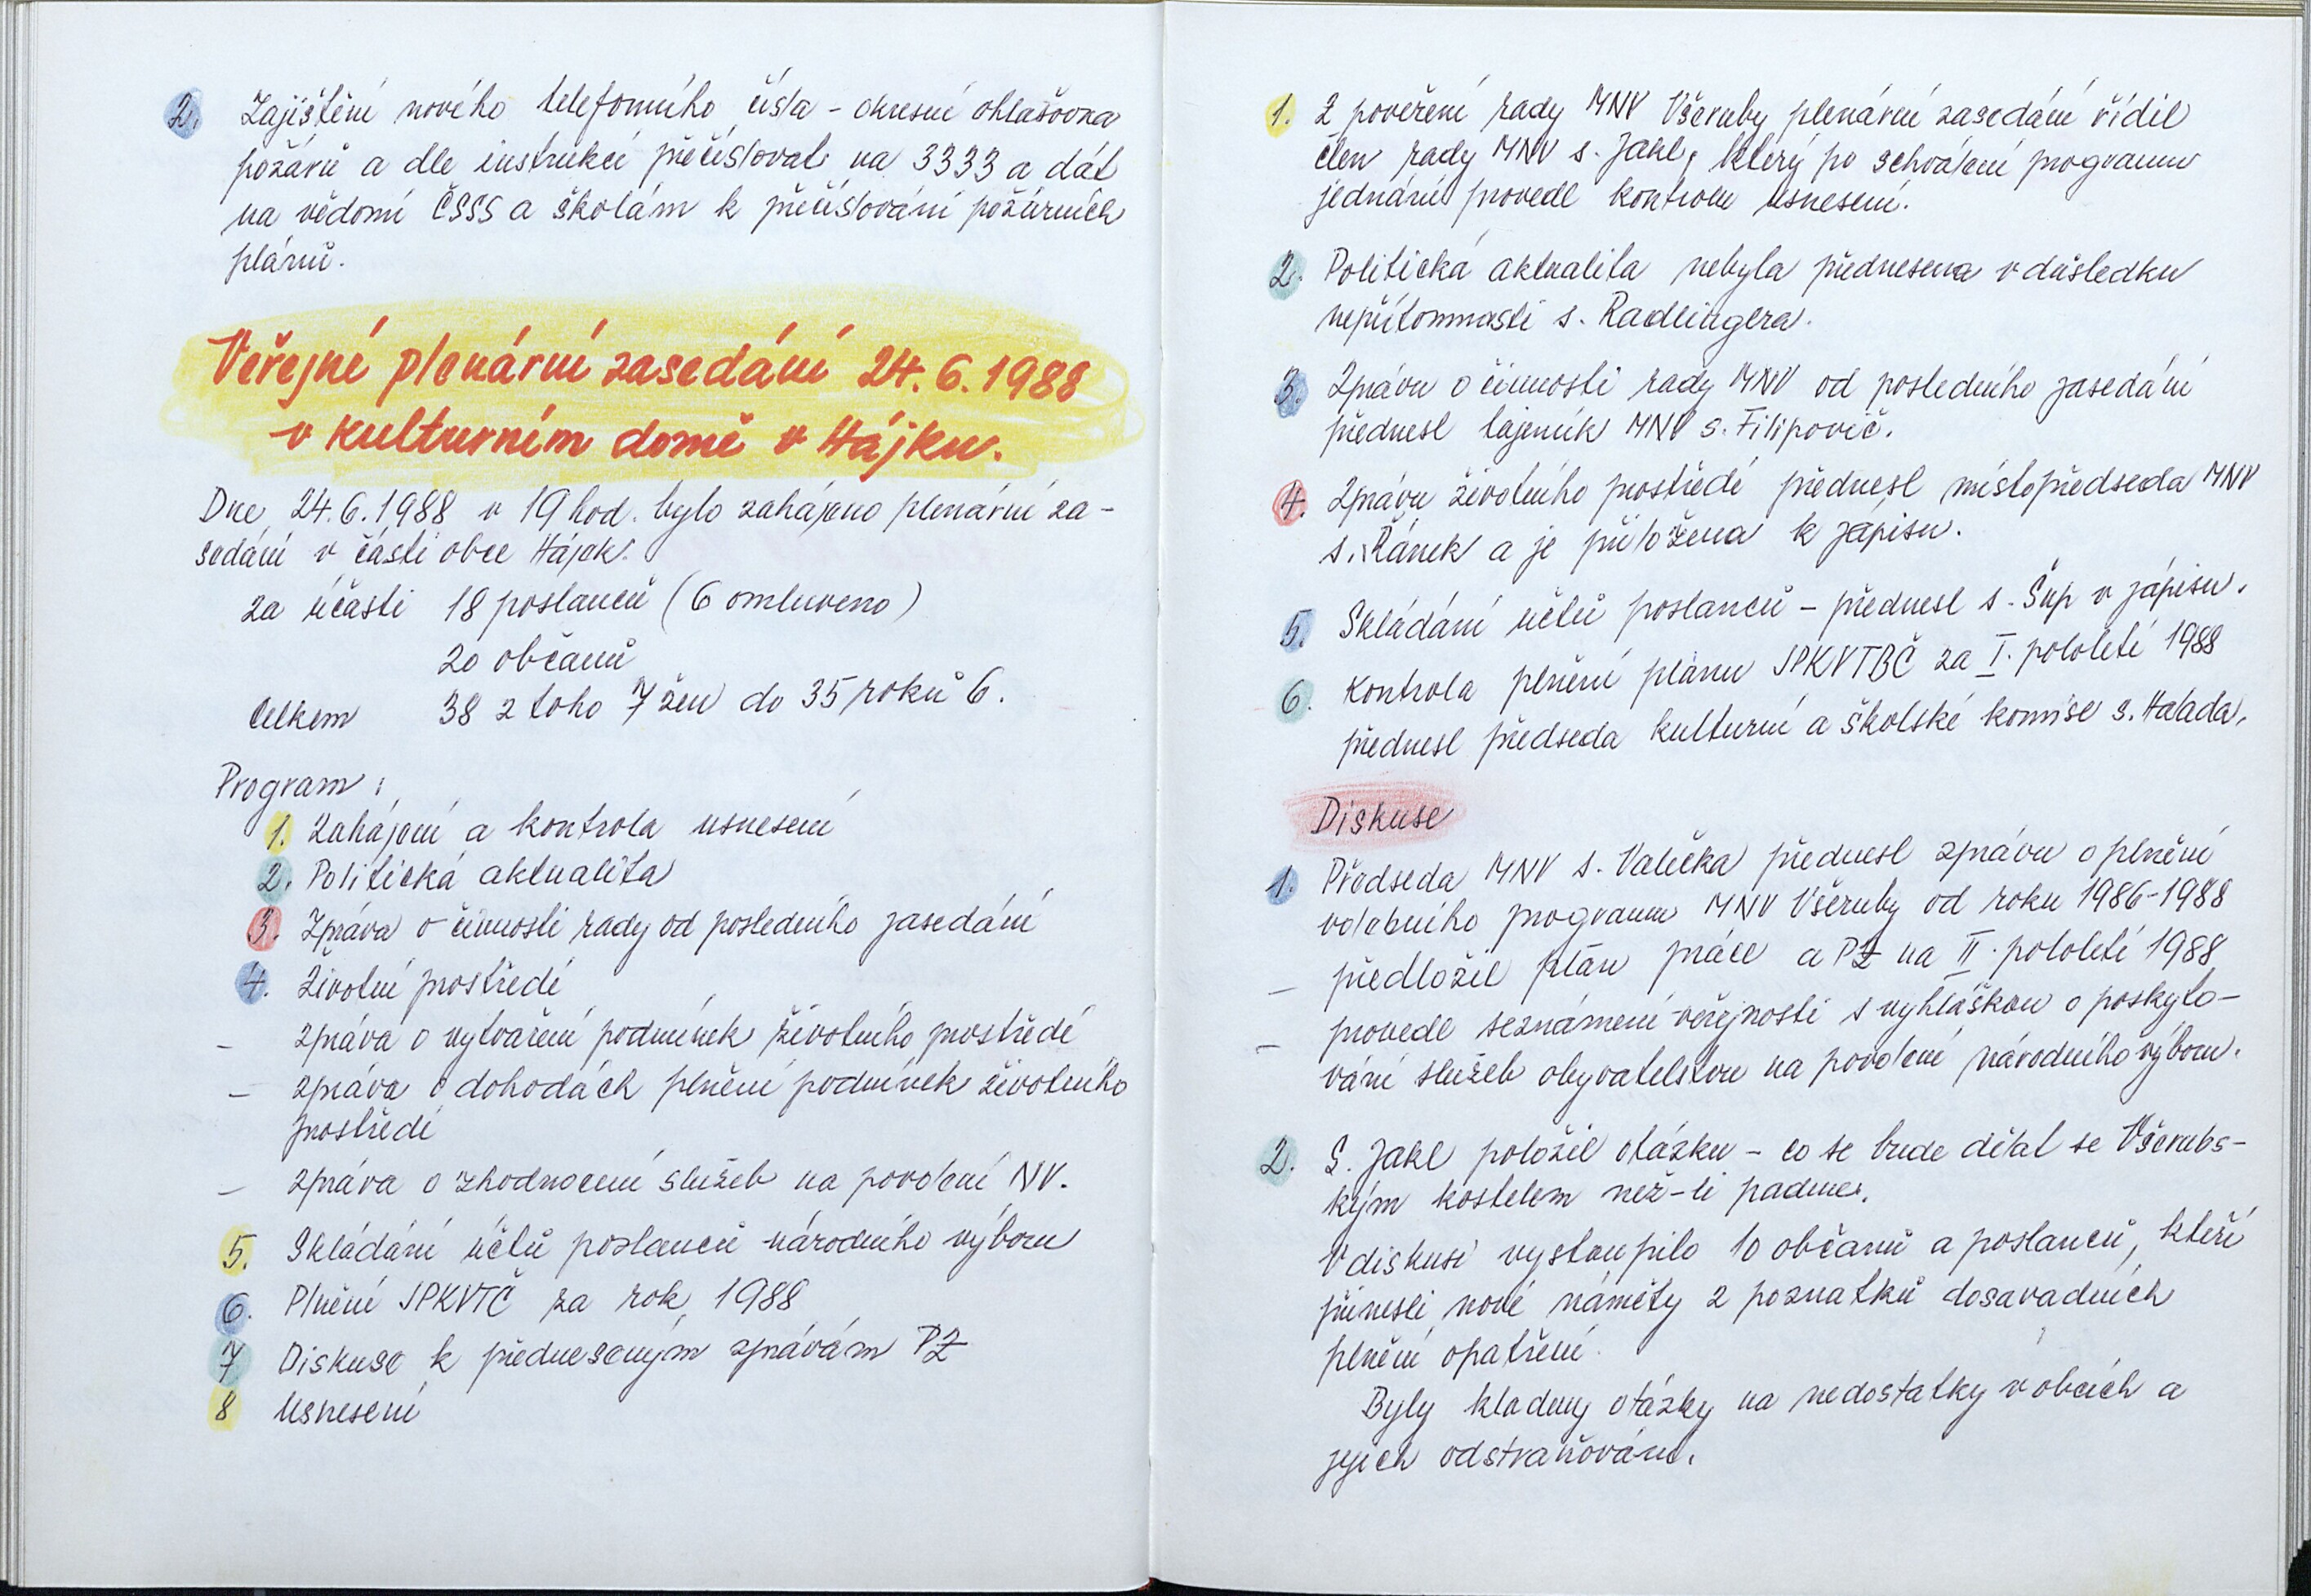 2. Zajištění nového telefonního čísla - okresní ohlašovna
požárů a dle instrukcí přečíslovat na 3333 a dát
na vědomí ČSSS a školám k přečíslování požárních
plánů.
Veřejné plenární zasedání 24.6.1988
v kulturním domě v Hájku.
Dne 24.6.1988 v 19 hod. bylo zahájeno plenární za-
sedání v části obce Hájek.
za účasti 18 poslanců (6 omluveno)
20 občanů
Celkem 38 z toho 7 žen do 35 roků 6.
Program:
1. Zahájení a kontrola usnesení
2. Politická aktualita
3. Zpráva o činnosti rady od posledního zasedání
4. Životní prostředí
- zpráva o vytváření podmínek životního prostředí
- zpráva o dohodách plnění podmínek životního
prostředí
- zpráva o zhodnocení služeb na povolení NV.
5. Skládání účtů poslanců národního výboru
6. Plnění JPKVTČ za rok 1988
7 Diskuse k předneseným zprávám PZ
8 Usnesení
1. Z pověření rady MNV Všeruby plenární zasedání řídil
člen rady MNV s. Jakl, který po schválení programu
jednání provedl kontrolu usnesení.
2. Politická aktualita nebyla přednesena v důsledku
nepřítomnosti s. Radlingera.
3. Zprávu o činnosti rady MNV od posledního zasedání
přednesl tajemník MNV s. Filipovič.
4. Zprávu životního prostředí přednesl místopředseda MNV
s. Řánek a je přiložena k zápisu.
5. Skládání účtů poslanců - přednesl s. Šup v zápisu.
6. Kontrola plnění plánu JPKVTBČ za I. pololetí 1988
přednesl předseda kulturní a školské komise s. Halada.
Diskuse
1. Předseda MNV s. Valečka přednesl zprávu o plnění
volebního programu MNV Všeruby od roku 1986-1988
- předložil plán práce a PZ na II. pololetí 1988
- provedl seznámení veřejnosti s vyhláškou o poskyto-
vání služeb obyvatelstvu na povolení národního výboru.
2. S. Jakl položil otázku - co se bude dělat se Všerubs-
kým kostelem než-li padne.
V diskusi vystoupilo 10 občanů a poslanců, kteří
přinesli nové náměty z poznatků dosavadních
plnění opatření.
Byly kladeny otázky na nedostatky v obcích a
jejich odstraňování.